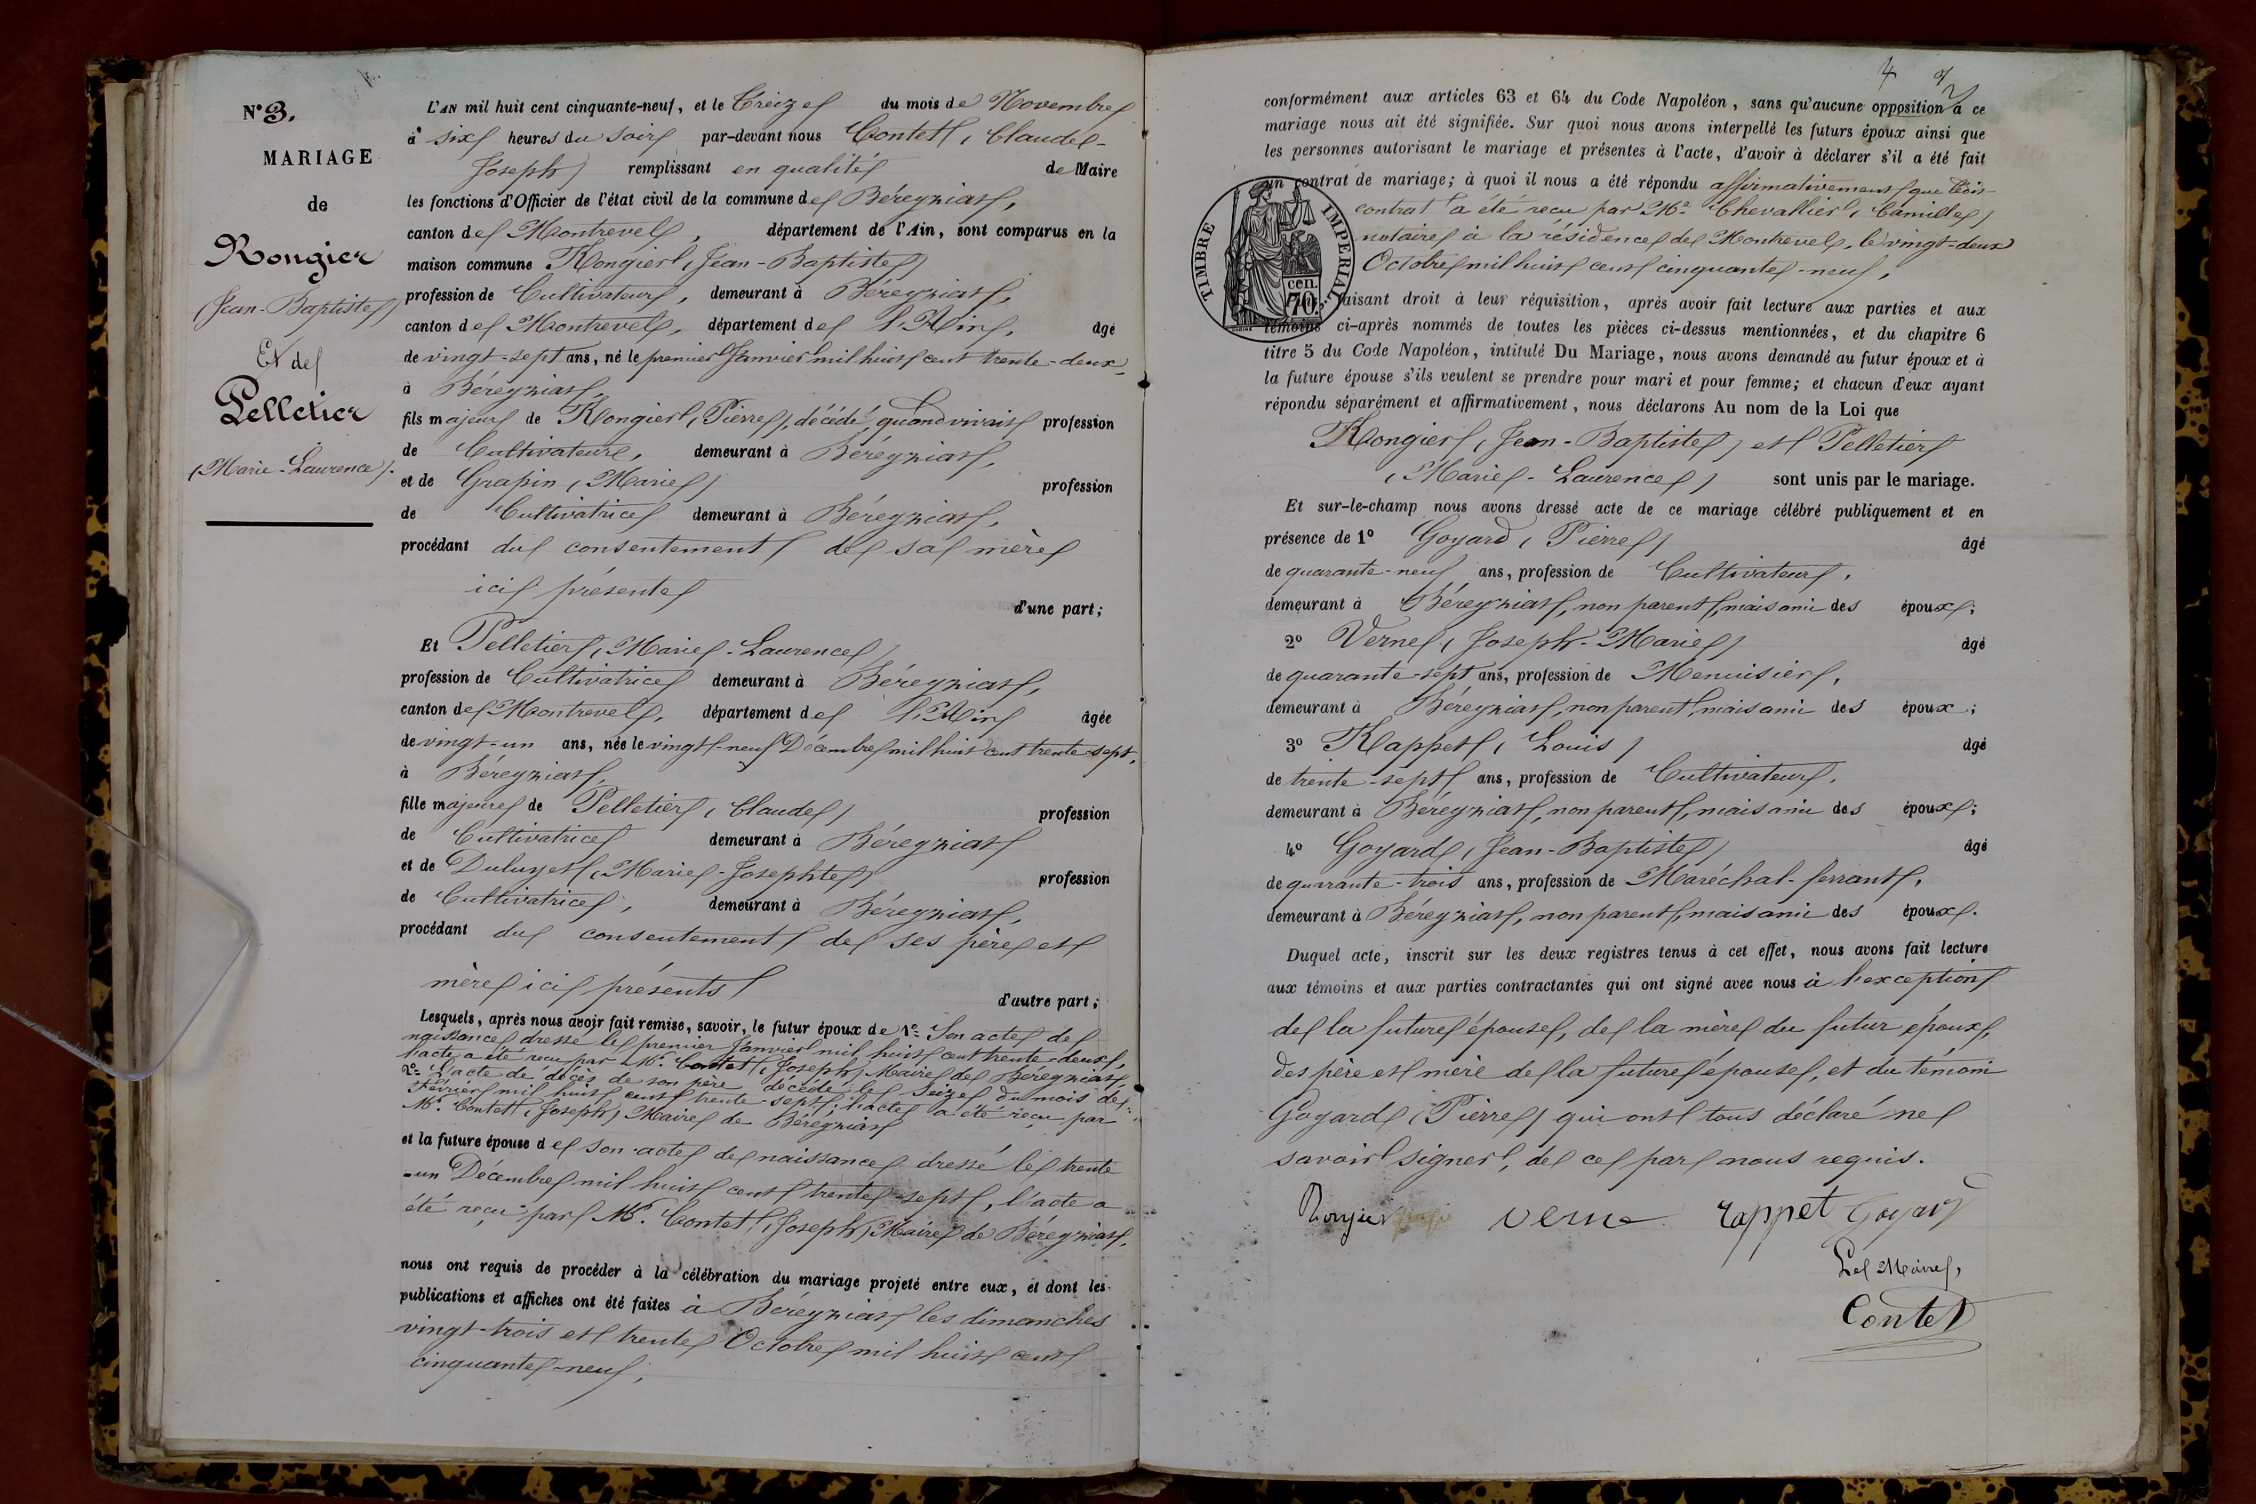 N° 3.
MARIAGE
de
Rongier
(Jean-Baptiste)
Et de
Pelletier
(Marie-Laurence).
L'AN mil huit cent cinquante-neuf, et le Treize du mois de Novembre
à six heures du soir par-devant nous Contet, Claude-
Joseph) remplissant en qualité de Maire
les fonctions d'Officier de l'état civil de la commune de Béréyziat,
canton de Montrevel, département de l'Ain, sont comparus en la
maison commune Rongier (Jean-Baptiste)
profession de Cultivateur, demeurant à Béréyziat,
canton de Montrevel, département de l'Ain, âgé
de vingt-sept ans, né le premier Janvier mil huit cent trente-deux,
à Béréyziat,
fils majeur de Rongier (Pierre), décédé, quand vivait profession
de Cultivateur, demeurant à Béréyziat,
et de Grapin (Marie) profession
de Cultivatrice demeurant à Béréyziat,
procédant du consentement de sa mère
ici présente
d'une part;
Et Pelletier (Marie-Laurence)
profession de Cultivatrice demeurant à Béréyziat,
canton de Montrevel, département de l'Ain âgée
de vingt-un ans, née le vingt-neuf Décembre mil huit cent trente-sept,
à Béréyziat,
fille majeure de Pelletier (Claude) profession
de Cultivatrice demeurant à Béréyziat
et de Duluyet (Marie-Josephte) profession
de Cultivatrice, demeurant à Béréyziat,
procédant du consentement de ses père et
mère ici présents
d'autre part;
Lesquels, après nous avoir fait remise, savoir, le futur époux de 1°= Son acte de
naissance dressé le premier Janvier mil huit cent trente-deux,
l'acte a été reçu par Mr. Contet (Joseph) Maire de Béréyziat,
2°= L'acte de décès de son père décédé le Seize du mois de
Février mil huit cent trente-sept; l'acte a été reçu par
Mr. Contet (Joseph) Maire de Béréyziat
et la future épouse de son acte de naissance dressé le trente
-un Décembre mil huit cent trente-sept, l'acte a
été reçu par Mr. Contet (Joseph) Maire de Béréyziat,
nous ont requis de procéder à la célébration du mariage projeté entre eux, et dont les
publications et affiches ont été faites à Béréyziat les dimanches
vingt-trois et trente Octobre mil huit cent
cinquante-neuf,
4
conformément aux articles 63 et 64 du Code Napoléon, sans qu'aucune opposition à ce
mariage nous ait été signifiée. Sur quoi nous avons interpellé les futurs époux ainsi que
les personnes autorisant le mariage et présentes à l'acte, d'avoir à déclarer s'il a été fait
un contrat de mariage; à quoi il nous a été répondu affirmativement que
contrat a été reçu par Me. Chevallier (Camille)
notaire à la résidence de Montrevel, le vingt-deux
Octobre mil huit cent cinquante-neuf,
TIMBRE IMPERIAL.
cen.
70.
faisant droit à leur réquisition, après avoir fait lecture aux parties et aux
témoins ci-après nommés de toutes les pièces ci-dessus mentionnées, et du chapitre 6
titre 5 du Code Napoléon, intitulé Du Mariage, nous avons demandé au futur époux et à
la future épouse s'ils veulent se prendre pour mari et pour femme; et chacun d'eux ayant
répondu séparément et affirmativement, nous déclarons Au nom de la Loi que
Rongier (Jean-Baptiste) et Pelletier
(Marie-Laurence) sont unis par le mariage.
Et sur-le-champ nous avons dressé acte de ce mariage célébré publiquement et en
présence de 1° Goyard (Pierre) âgé
de quarante-neuf ans, profession de Cultivateur,
demeurant à Béréyziat, non parent, mais ami des époux;
2° Verne (Joseph-Marie) âgé
de quarante-sept ans, profession de Menuisier,
demeurant à Béréyziat, non parent, mais ami des époux;
3° Rappet (Louis) âgé
de trente-sept ans, profession de Cultivateur,
demeurant à Béréyziat, non parent, mais ami des époux;
4° Goyard (Jean-Baptiste) âgé
de quarante-trois ans, profession de Maréchal-ferrant,
demeurant à Béréyziat, non parent, mais ami des époux.
Duquel acte, inscrit sur les deux registres tenus à cet effet, nous avons fait lecture
aux témoins et aux parties contractantes qui ont signé avec nous à l'exception
de la future épouse, de la mère du futur époux,
des père et mère de la future épouse, et du témoin
Goyard (Pierre) qui ont tous déclaré ne
savoir signer, de ce par nous requis.
Rongier verne rappet Goyard
Le Maire,
Contet